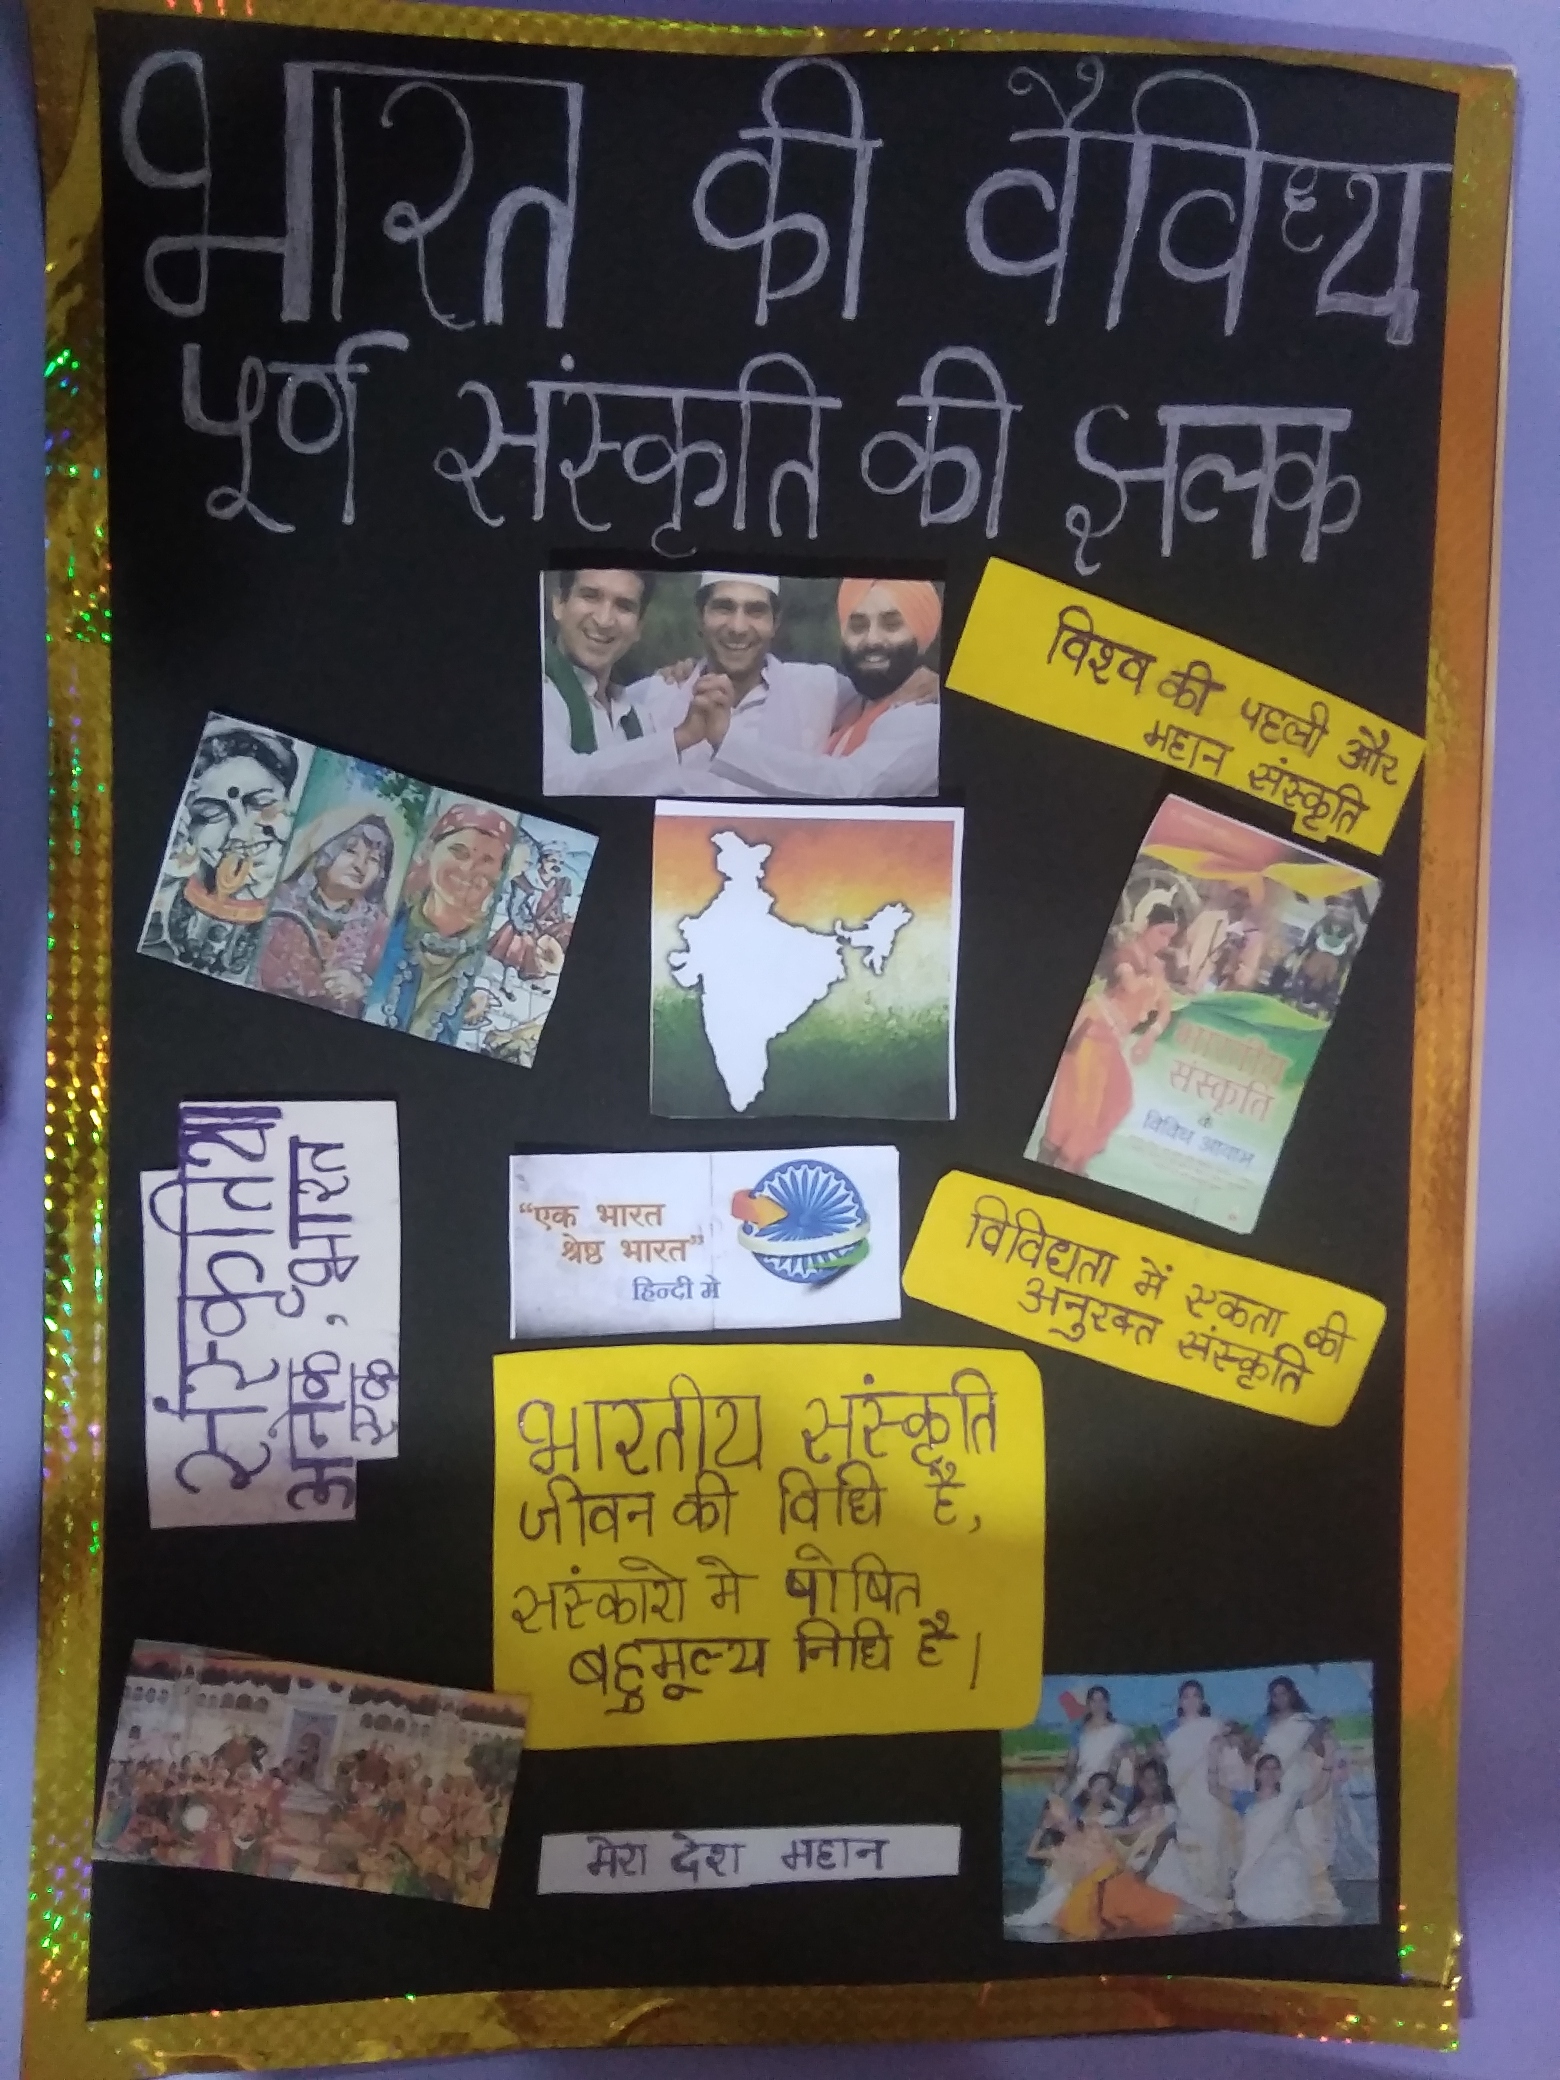 भारत की वैविध्य
पूर्ण संस्कृति की झलक
विश्व की पहली और
महान संस्कृति
भारतीय
संस्कृति
के
विविध आयाम
संस्कृतिया
अनेक, भारत
एक
“एक भारत
श्रेष्ठ भारत”
हिन्दी मे
विविधता में एकता की
अनुरक्त संस्कृति
भारतीय संस्कृति
जीवन की विधि है,
संस्कारो मे पोषित
बहुमूल्य निधि है।
मेरा देश महान